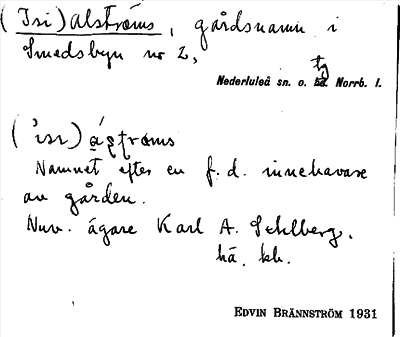 (Isi) Alströms, gårdsnamn i
Smedsbyn nr 2,
tg
Nederluleå sn. o. hd. Norrb. l.
Namnet efter en f. d. innehavare
av gården.
Nuv. ägare Karl A. Sehlberg.
hä. kh.
EDVIN BRÄNNSTRÖM 1931